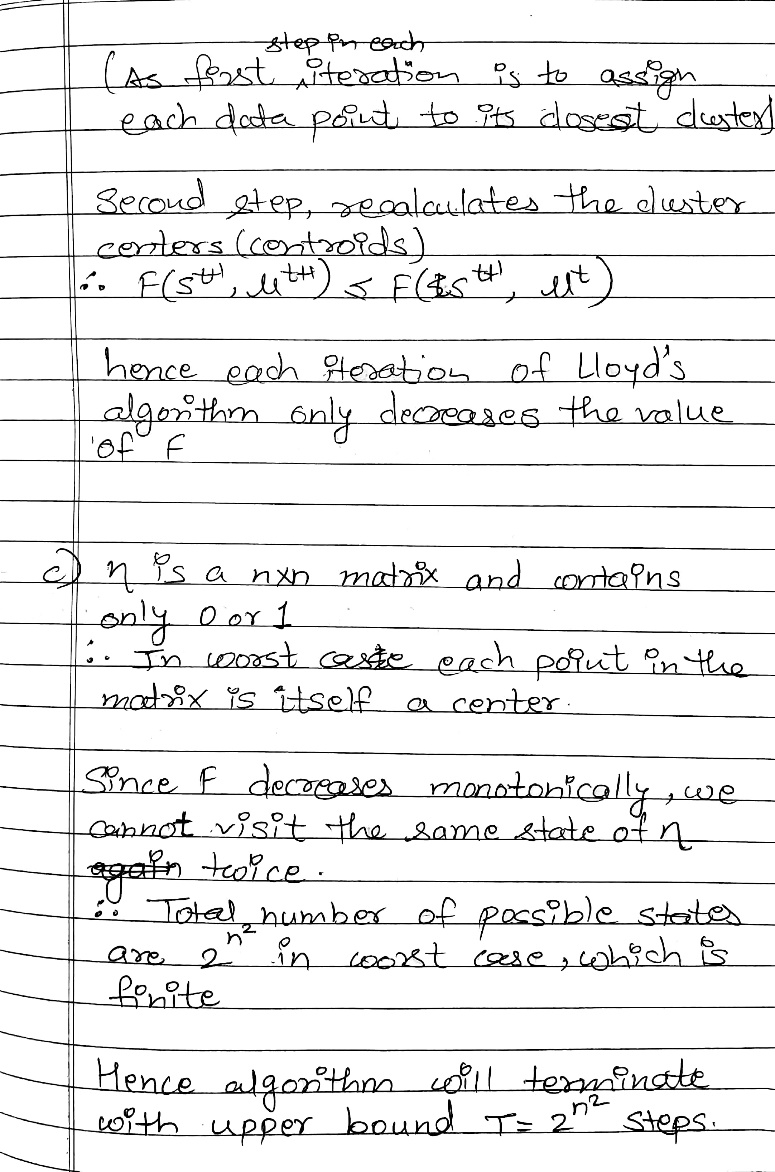 step in each
(As first ^iteration is to assign
each data point to its closest cluster)
Second step, recalculates the cluster
centers (centroids)
∴ F(S^{t+1}, μ^{t+1}) ≤ F(S^{t+1}, μ^t)
hence each iteration of Lloyd's
algorithm only decreases the value
of F
c) η is a nxn matrix and contains
only 0 or 1
∴ In worst case each point in the
matrix is itself a center.
Since F decreases monotonically, we
cannot visit the same state of η
again twice.
∴ Total number of possible states
are 2^{n^2} in worst case, which is
finite
Hence algorithm will terminate
with upper bound T= 2^{n^2} steps.